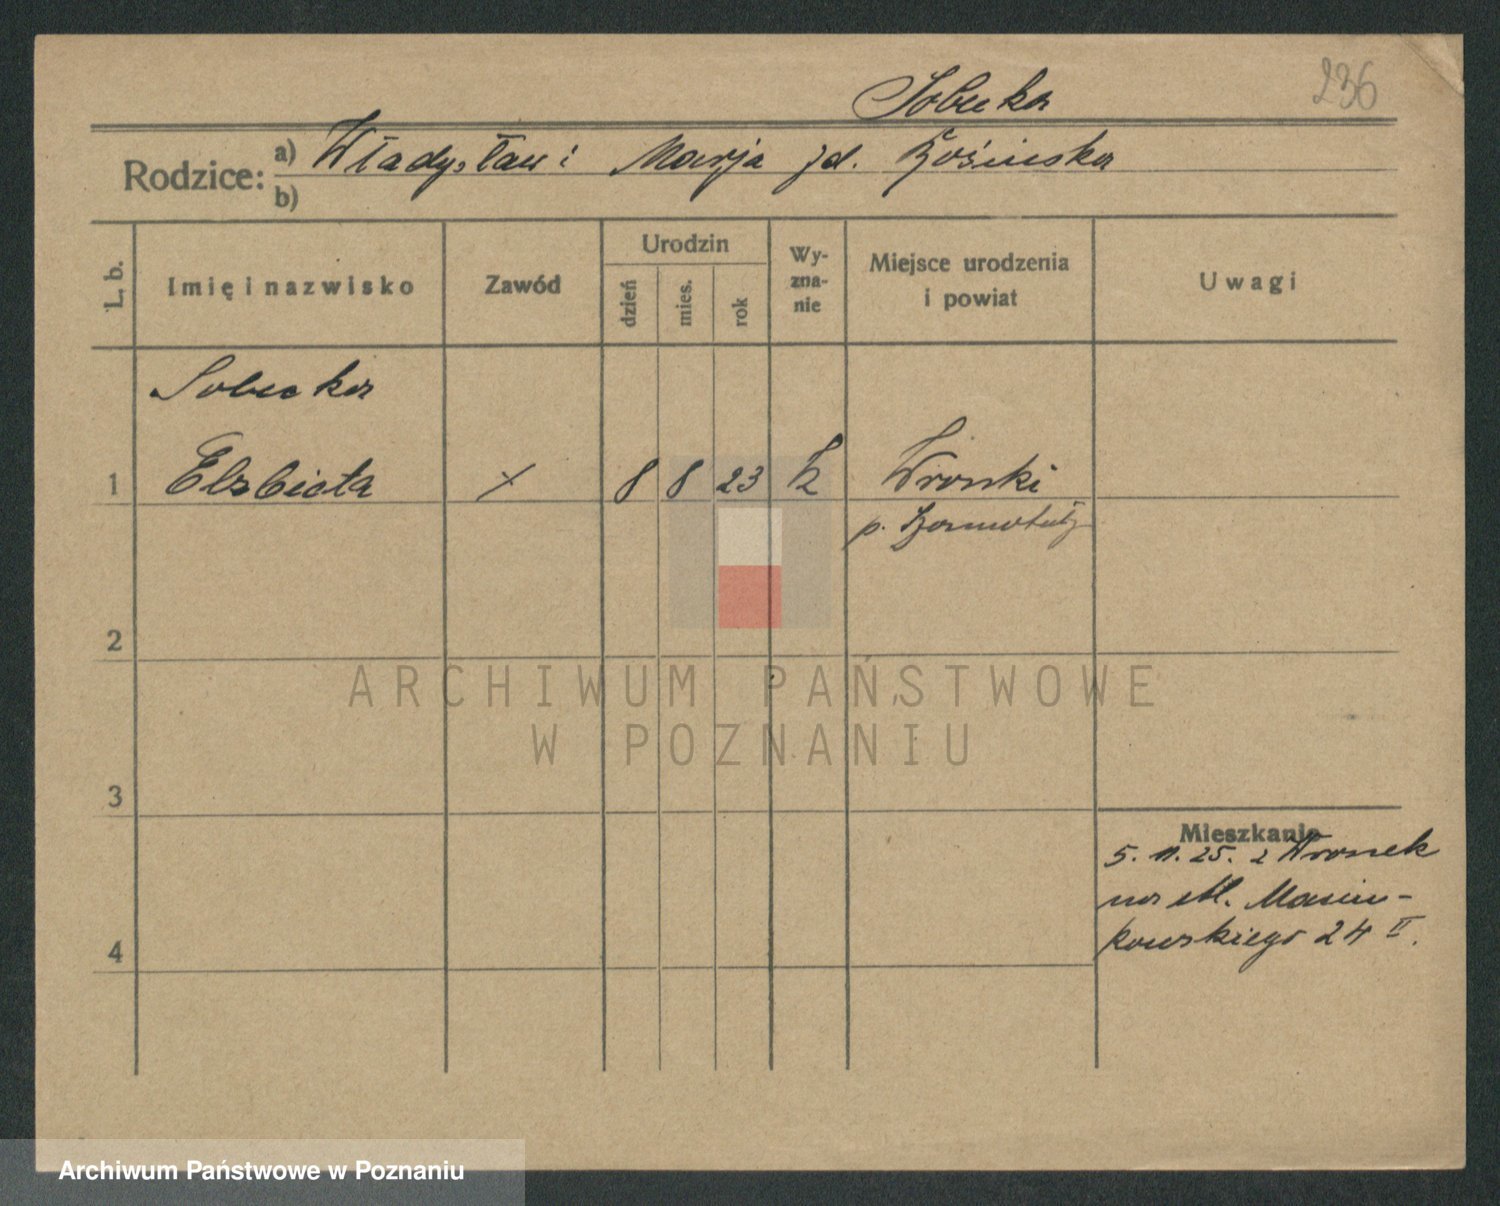 236
Sobecka
Rodzice: a) Władysław i Marja zd.
b)
L. b.
Imię i nazwisko
Zawód
Urodzin
dzień
mies.
rok
Wy-
zna-
nie
Miejsce urodzenia
i powiat
Uwagi
Sobecka
1 Elzbieta 8 8 23 Wronki
p. Szamotuły
2
3
4
Mieszkanie
5. 11. 25. z Wronek
na
kowskiego 24 II.
ARCHIWUM PAŃSTWOWE
W POZNANIU
Archiwum Państwowe w Poznaniu